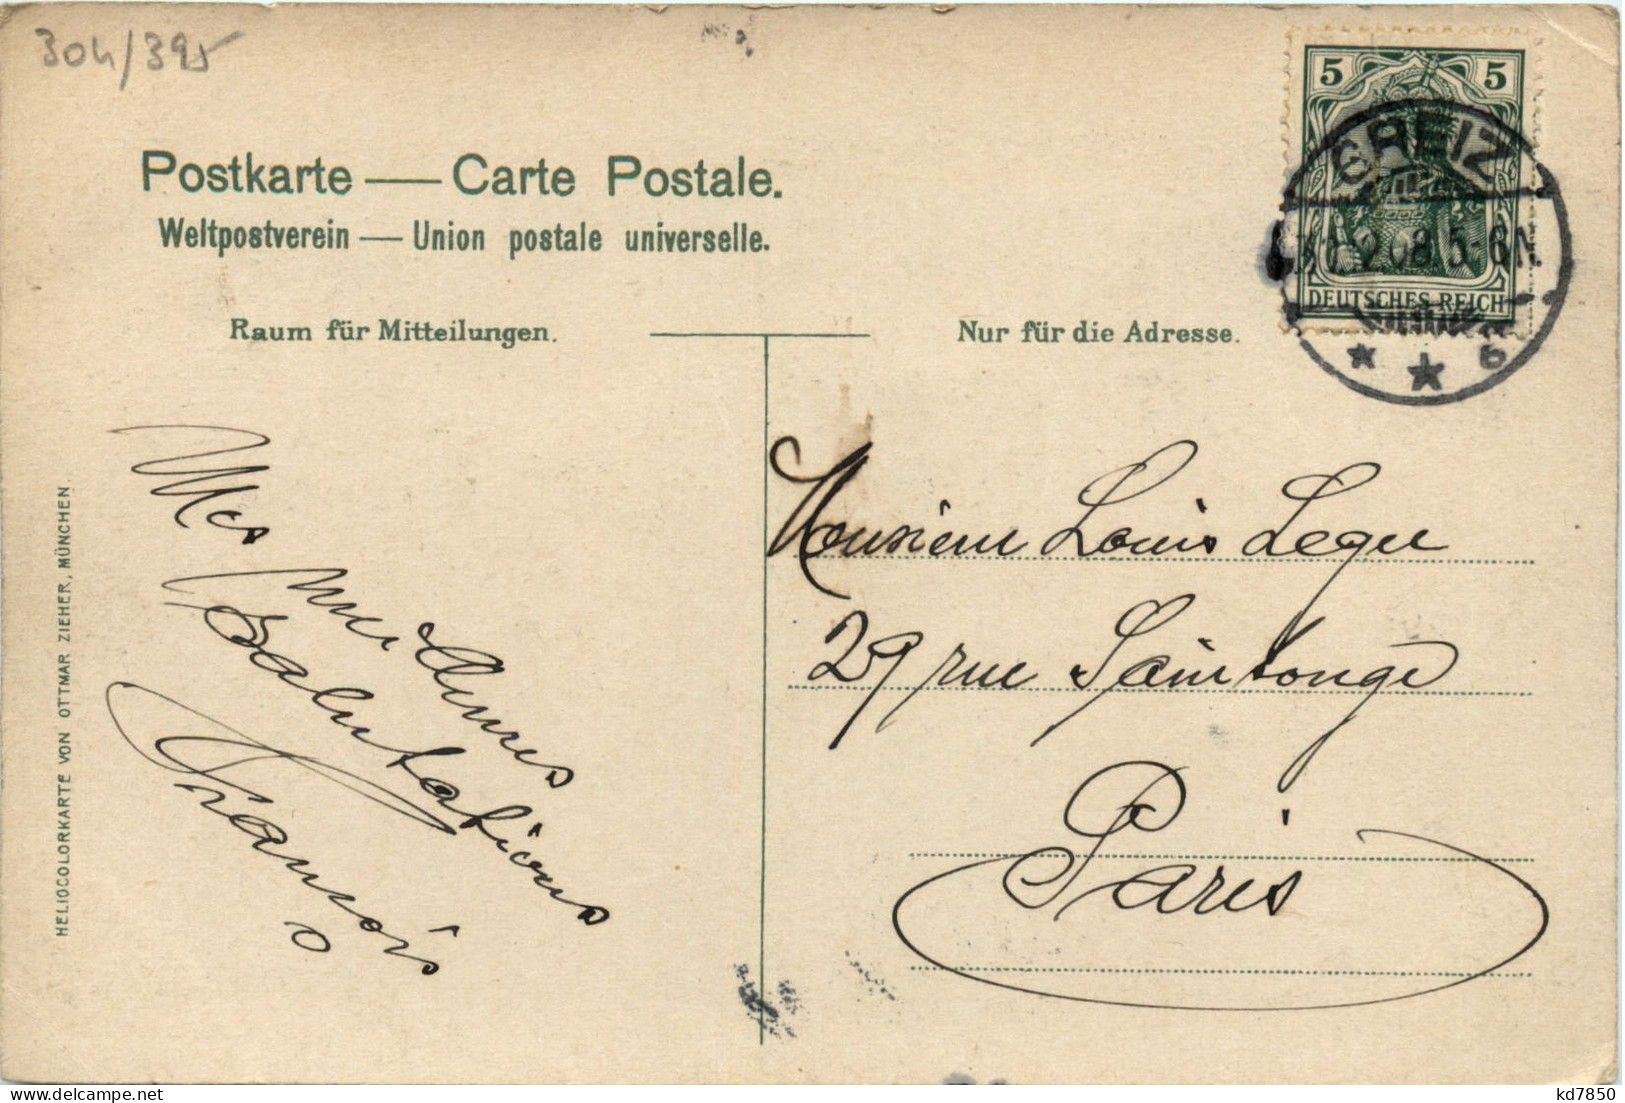 304/395
Postkarte — Carte Postale.
Weltpostverein — Union postale universelle.
Raum für Mitteilungen.
Nur für die Adresse.
5 5
DEUTSCHES REICH
GREIZ
2.08.5-6N.
* * b
HELIOCOLORKARTE VON OTTMAR ZIEHER, MÜNCHEN
Mes
meilleures
Salutations
François
Monsieur Louis Leger
29 rue Saintonge
Paris
kd7850